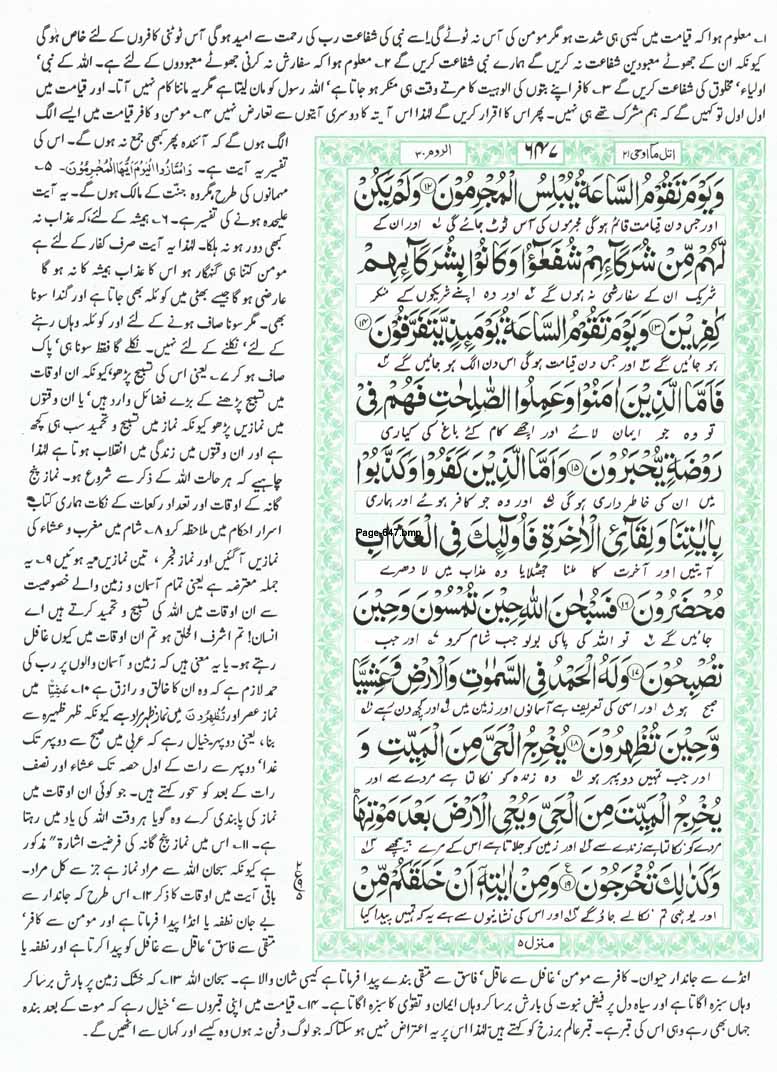 ۱۔ معلوم ہوا کہ قیامت میں کیسی ہی شدت ہو مگر مومن کی آس نہ ٹوٹے گی اسے نبی کی شفاعت رب کی رحمت سے امید ہو گی آس ٹوٹنی کافروں کے لئے خاص ہو گی
کیونکہ ان کے جھوٹے معبودین شفاعت نہ کریں گے ہمارے نبی شفاعت کریں گے ۲۔ معلوم ہوا کہ سفارش نہ کرنی جھوٹے معبودوں کے لئے ہے۔ اللہ کے نبی،
اولیاء، مخلوق کی شفاعت کریں گے ۳۔ کافر اپنے بتوں کی الوہیت کا مرتے وقت ہی منکر ہو جاتا ہے، اللہ رسول کو مان لیتا ہے مگر یہ ماننا کام نہیں آتا۔ اور قیامت میں
اول اول تو کہیں گے کہ ہم مشرک تھے ہی نہیں۔ پھر اس کا اقرار کریں گے لہٰذا اس آیتہ کا دوسری آیتوں سے تعارض نہیں ۴۔ مومن و کافر قیامت میں ایسے الگ
الگ ہوں گے کہ آئندہ پھر کبھی جمع نہ ہوں گے۔ اس کی
تفسیر یہ آیت ہے۔ وَامْتَازُوا الْيَوْمَ اَيُّهَا الْمُجْرِمُوْنَ۔ ۵۔
مہمانوں کی طرح مگر وہ جنت کے مالک ہوں گے۔ یہ آیت
علیحدہ ہونے کی تفسیر ہے۔ ۶۔ ہمیشہ کے لئے کہ عذاب نہ
کبھی دور ہو نہ ہلکا۔ لہٰذا یہ آیت صرف کفار کے لئے ہے
مومن کتنا ہی گنہگار ہو اس کا عذاب ہمیشہ کا نہ ہو گا
عارضی ہو گا جیسے بھٹی میں کوئلہ بھی جاتا ہے اور گندا سونا
بھی۔ مگر سونا صاف ہونے کے لئے اور کوئلہ وہاں رہنے
کے لئے، نکلنے کے لئے نہیں۔ نکلے گا فقط سونا ہی، پاک
صاف ہو کر ۷۔ یعنی اس کی تسبیح پڑھو، کیونکہ ان اوقات
میں تسبیح پڑھنے کے بڑے فضائل وارد ہیں، یا ان وقتوں
میں نمازیں پڑھو کیونکہ نماز میں تسبیح و تحمید سب ہی کچھ
ہے اور ان وقتوں میں زندگی میں انقلاب ہوتا ہے لہٰذا
چاہیے کہ ہر حالت اللہ کے ذکر سے شروع ہو۔ نماز پنج
گانہ کے اوقات اور تعداد رکعات کے نکات ہماری کتاب
اسرار احکام میں ملاحظہ کرو ۸۔ شام میں مغرب و عشاء کی
نمازیں آ گئیں اور نماز فجر، تین نمازیں یہ ہوئیں ۹۔ یہ
جملہ معترضہ ہے یعنی تمام آسمان و زمین والے خصوصیت
سے ان اوقات میں اللہ کی تسبیح و تحمید کرتے ہیں اے
انسان! تم اشرف الخلق ہو تم ان اوقات میں کیوں غافل
رہتے ہو۔ یا یہ معنی ہیں کہ زمین و آسمان والوں پر رب کی
حمد لازم ہے کہ وہ ان کا خالق و رازق ہے ۱۰۔ عَشِيًّا میں
نماز عصر اور تُظْهِرُوْنَ میں نماز ظہر مراد ہے کیونکہ ظہر ظہیرہ سے
بنا، یعنی دوپہر خیال رہے کہ عربی میں صبح سے دوپہر تک
غدا، دوپہر سے رات کے اول حصہ تک عشاء اور نصف
رات کے بعد کو سحور کہتے ہیں۔ جو کوئی ان اوقات میں
نماز کی پابندی کرے وہ گویا ہر وقت اللہ کی یاد میں رہتا
ہے۔ ۱۱۔ اس میں نماز پنج گانہ کی فرضیت اشارۃً مذکور
ہے کیونکہ سبحان اللہ سے مراد نماز ہے جز سے کل مراد۔
باقی آیت میں اوقات کا ذکر ۱۲۔ اس طرح کہ جاندار سے
بے جان نطفہ یا انڈا پیدا فرماتا ہے اور مومن سے کافر،
متقی سے فاسق، عاقل سے غافل کو پیدا کرتا ہے اور نطفہ یا
اتل مآ اوحی ۲۱
۶۴۷
الروم ۳۰
وَيَوْمَ تَقُوْمُ السَّاعَةُ يُبْلِسُ الْمُجْرِمُوْنَ ۝۱۲ وَلَمْ يَكُنْ
اور جس دن قیامت قائم ہوگی مجرموں کی آس ٹوٹ جائے گی اور ان کے
لَّهُمْ مِّنْ شُرَكَآئِهِمْ شُفَعٰٓؤُا وَكَانُوْا بِشُرَكَآئِهِمْ
شریک ان کے سفارشی نہ ہوں گے اور وہ اپنے شریکوں کے منکر
كٰفِرِيْنَ ۝۱۳ وَيَوْمَ تَقُوْمُ السَّاعَةُ يَوْمَئِذٍ يَّتَفَرَّقُوْنَ ۝۱۴
ہو جائیں گے اور جس دن قیامت ہوگی اس دن الگ ہو جائیں گے
فَاَمَّا الَّذِيْنَ اٰمَنُوْا وَعَمِلُوا الصّٰلِحٰتِ فَهُمْ فِيْ
تو وہ جو ایمان لائے اور اچھے کام کئے باغ کی کیاری
رَوْضَةٍ يُّحْبَرُوْنَ ۝۱۵ وَاَمَّا الَّذِيْنَ كَفَرُوْا وَكَذَّبُوْا
میں ان کی خاطر داری ہوگی اور وہ جو کافر ہوئے اور ہماری
Page-647.bmp
بِاٰيٰتِنَا وَلِقَآئِ الْاٰخِرَةِ فَاُولٰٓئِكَ فِي الْعَذَابِ
آیتیں اور آخرت کا ملنا جھٹلایا وہ عذاب میں لا دھرے
مُحْضَرُوْنَ ۝۱۶ فَسُبْحٰنَ اللّٰهِ حِيْنَ تُمْسُوْنَ وَحِيْنَ
جائیں گے تو اللہ کی پاکی بولو جب شام کرو اور جب
تُصْبِحُوْنَ ۝۱۷ وَلَهُ الْحَمْدُ فِي السَّمٰوٰتِ وَالْاَرْضِ وَعَشِيًّا
صبح ہو اور اسی کی تعریف ہے آسمانوں اور زمین میں اور کچھ دن رہے
وَّحِيْنَ تُظْهِرُوْنَ ۝۱۸ يُخْرِجُ الْحَيَّ مِنَ الْمَيِّتِ وَ
اور جب تمہیں دوپہر ہو وہ زندہ کو نکالتا ہے مردے سے اور
يُخْرِجُ الْمَيِّتَ مِنَ الْحَيِّ وَيُحْيِ الْاَرْضَ بَعْدَ مَوْتِهَا
مردے کو نکالتا ہے زندے سے اور زمین کو جلاتا ہے اس کے مرے پیچھے
وَكَذٰلِكَ تُخْرَجُوْنَ ۝۱۹ وَمِنْ اٰيٰتِهٖٓ اَنْ خَلَقَكُمْ مِّنْ
اور یوں ہی تم نکالے جاؤ گے اور اس کی نشانیوں سے ہے یہ کہ تمہیں پیدا کیا
منزل ۵
انڈے سے جاندار حیوان۔ کافر سے مومن، غافل سے عاقل، فاسق سے متقی بندے پیدا فرماتا ہے کیسی شان والا ہے۔ سبحان اللہ ۱۳۔ کہ خشک زمین پر بارش برسا کر
وہاں سبزہ اگاتا ہے اور سیاہ دل پر فیض نبوت کی بارش برسا کر وہاں ایمان و تقویٰ کا سبزہ اگاتا ہے۔ ۱۴۔ قیامت میں اپنی قبروں سے، خیال رہے کہ موت کے بعد بندہ
جہاں بھی رہے وہی اس کی قبر ہے۔ قبر عالم برزخ کو کہتے ہیں لہٰذا اس پر یہ اعتراض نہیں ہو سکتا کہ جو لوگ دفن نہ ہوں وہ کیسے اور کہاں سے اٹھیں گے۔